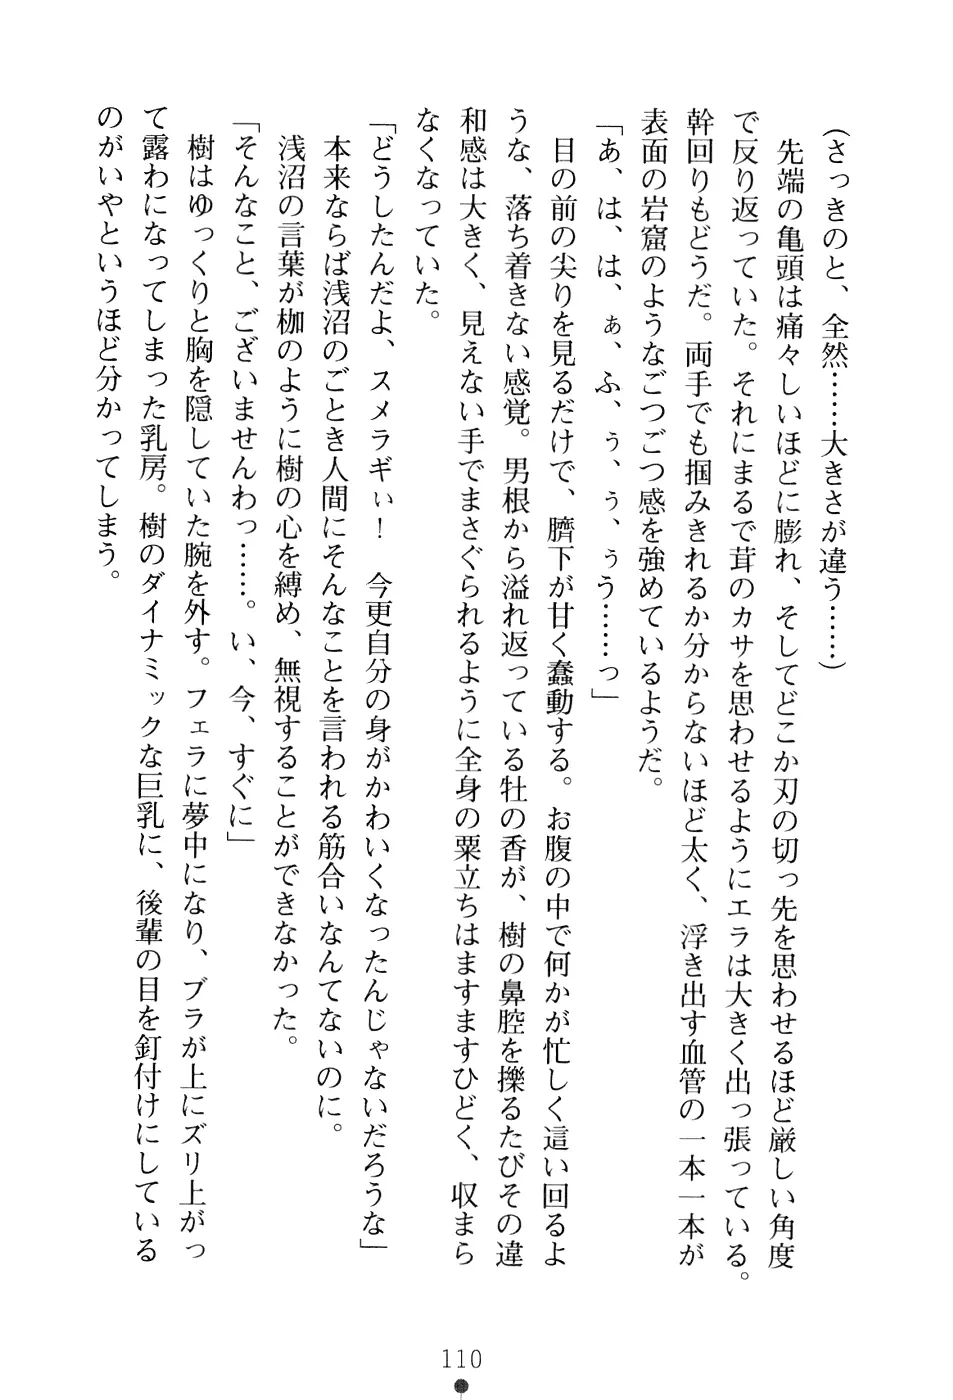 (さっきのと、全然……大きさが違う……)
先端の亀頭は痛々しいほどに膨れ、そしてどこか刃の切っ先を思わせるほど厳しい角度
で反り返っていた。それにまるで茸のカサを思わせるようにエラは大きく出っ張っている。
幹回りもどうだ。両手でも掴みきれるか分からないほど太く、浮き出す血管の一本一本が
表面の岩窟のようなごつごつ感を強めているようだ。
「あ、は、は、ぁ、ふ、ぅ、ぅ、ぅう……っ」
目の前の尖りを見るだけで、臍下が甘く蠢動する。お腹の中で何かが忙しく這い回るよ
うな、落ち着きない感覚。男根から溢れ返っている牡の香が、樹の鼻腔を擽るたびその違
和感は大きく、見えない手でまさぐられるように全身の粟立ちはますますひどく、収まら
なくなっていた。
「どうしたんだよ、スメラギぃ！　今更自分の身がかわいくなったんじゃないだろうな」
本来ならば浅沼のごとき人間にそんなことを言われる筋合いなんてないのに。
浅沼の言葉が枷のように樹の心を縛め、無視することができなかった。
「そんなこと、ございませんわっ……。い、今、すぐに」
樹はゆっくりと胸を隠していた腕を外す。フェラに夢中になり、ブラが上にズリ上がっ
て露わになってしまった乳房。樹のダイナミックな巨乳に、後輩の目を釘付けにしている
のがいやというほど分かってしまう。
110